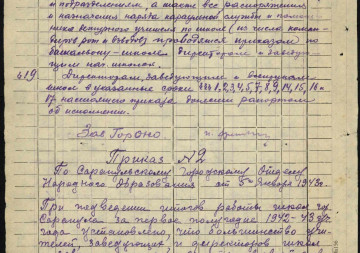 и подразделением, а также все распоряжения
и назначения наряда караульной службы и
по школе (из числа
приказом по
директором и заведу-
ющим нач. школой.
419. Директорам, заведующим и
школ в указанные сроки §§§ 1, 2, 3, 4, 5, 7, 8, 9, 14, 15, 16 и
настоящего приказа донести рапортом
об исполнении.
Зав. Гороно
Приказ №2
По Сарапульскому Городскому Отделу
Народного Образования от 5 января 1943 г.
При подведении итогов работы школ гор.
Сарапула за первое полугодие 1942-43 уч.
года установлено, что большинство учи-
телей, заведующих и директоров школ